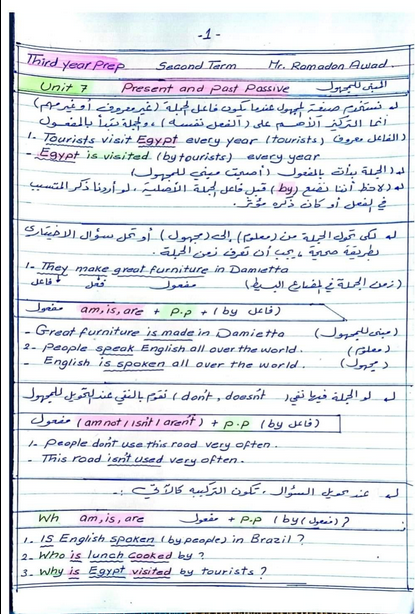 -1-
Third year Prep Second Term Mr. Ramadan Awad.
Unit 7 Present and Past Passive المبنى للمجهول
له نستخدم صيغة المجهول عندما يكون فاعل الجملة (غير معروف أو غير مهم)
انما التركيز الأهم على (الفعل نفسه) ، والجملة تبدأ بالمفعول
1. Tourists visit Egypt every year (tourists) (الفاعل معروف)
- Egypt is visited (by tourists) every year
له (الجملة بدأت بالمفعول) (أصبحت مبنى للمجهول)
له (لاحظ أننا نضع (by) قبل فاعل الجملة الأصلية، لو أردنا ذكر المتسبب
فى الفعل أو كان ذكره مؤثر.
له لكى تحول الجملة من (معلوم) إلى (مجهول) أو تحل سؤال الاختيارى
بطريقة صحيحة، يجب أن تعرف زمن الجملة.
1- They make great furniture in Damietta
فاعل فعل مفعول (زمن الجملة فى المضارع البسيط)
مفعول am, is, are + p.p + (by فاعل)
- Great furniture is made in Damietta (مبنى للمجهول)
2- People speak English all over the world. (معلوم)
- English is spoken all over the world. (مجهول)
له لو الجملة فيها نفى (don't, doesn't) نقوم بالنفى عند التحويل للمجهول
مفعول (am not / isn't / aren't) + p.p (by فاعل)
1- People don't use this road very often.
- This road isn't used very often.
له عند تحويل السؤال، تكون التركيبة كالآتى :-
Wh am, is, are مفعول + p.p (by (مفعول) ?
1. IS English spoken (by people) in Brazil ?
2. Who is lunch cooked by ?
3. Why is Egypt visited by tourists ?